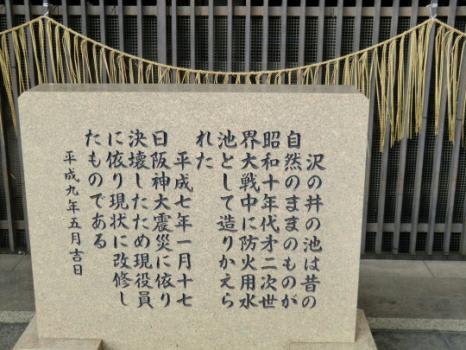 沢の井の池は昔の
自然のままのものが
昭和十年代才二次世
界大戦中に防火用水
池として造りかえら
れた
平成七年一月十七
日阪神大震災に依り
決壊したため現役員
に依り現状に改修し
たものである
平成九年五月吉日